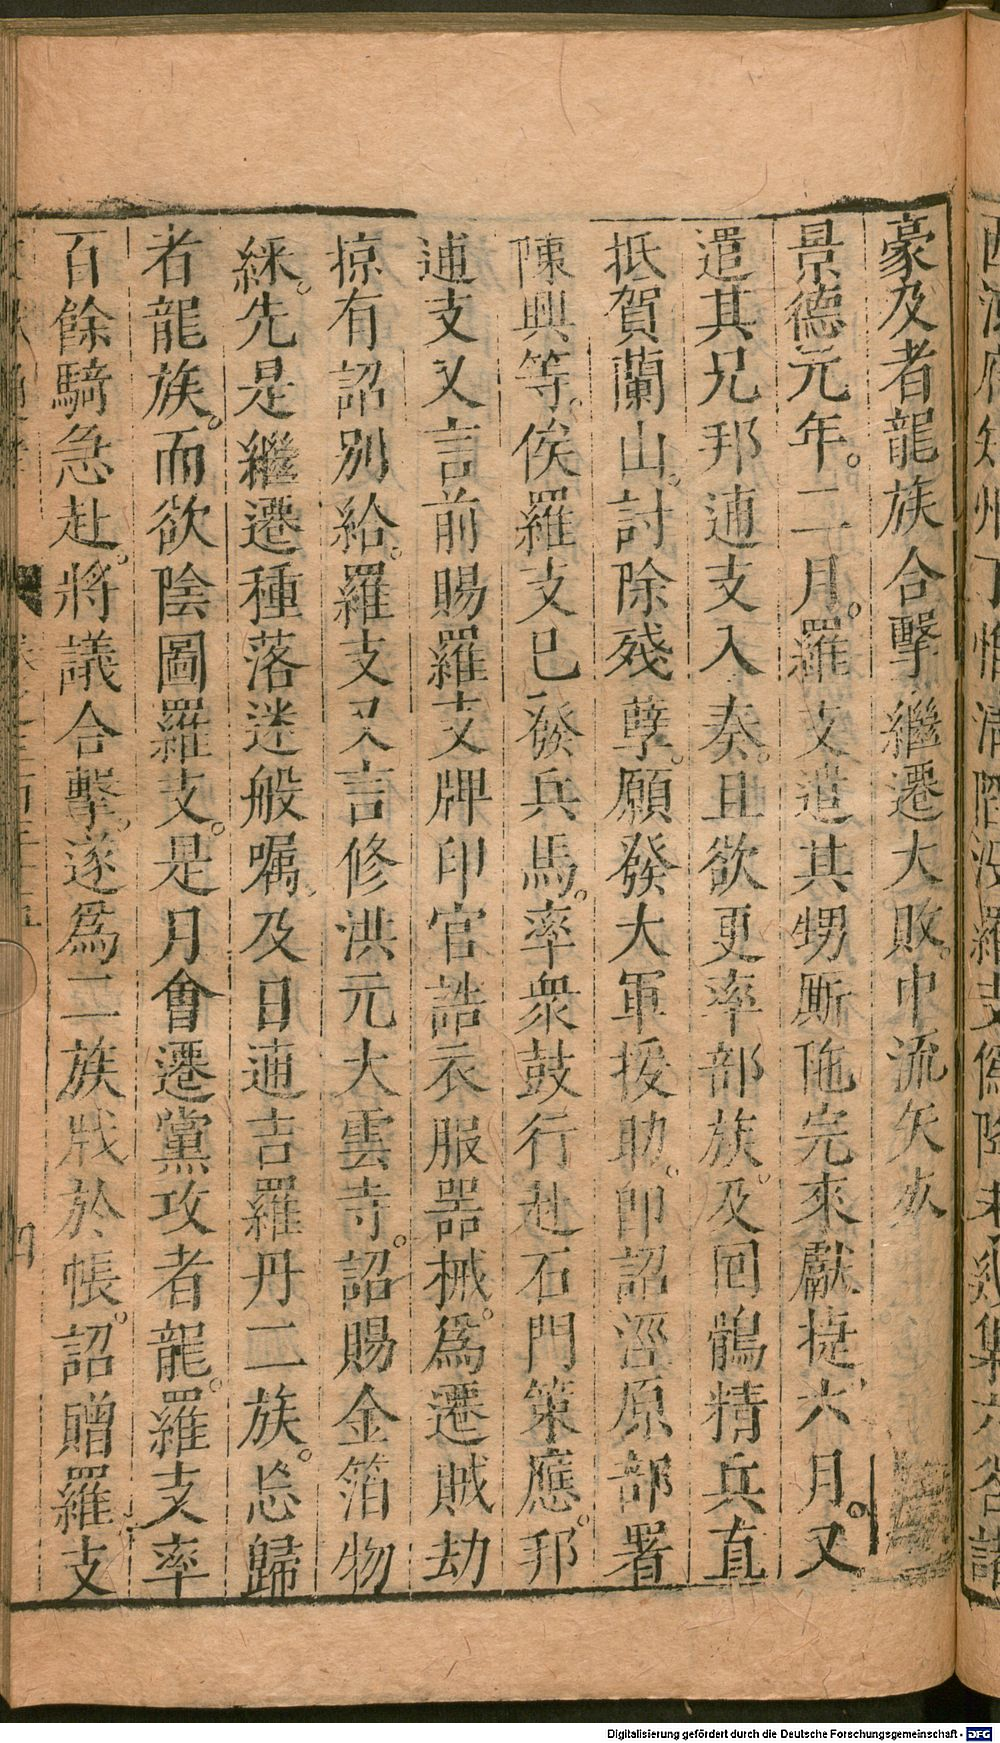 豪及者龍族合擊繼遷大敗中流矢死
景德元年。二月。羅支遣其甥厮陁完來獻捷六月。又
遣其兄邦逋支入奏。且欲更率部族。及回鶻精兵直
抵賀蘭山。討除殘孽。願發大軍援助。卽詔涇原部署
陳興等。俟羅支已發兵馬。率衆鼓行赴石門策應。邦
逋支又言前賜羅支牌印官誥衣服器械。爲遷賊劫
掠有詔別給。羅支又言修洪元大雲寺。詔賜金箔物
綵。先是繼遷種落迷般嘱及日逋吉羅丹二族。㤀歸
者龍族。而欲陰圖羅支。是月會遷黨攻者龍。羅支率
百餘騎急赴。將議合擊。遂爲二族戕於帳。詔贈羅支
Digitalisierung gefördert durch die Deutsche Forschungsgemeinschaft - DFG